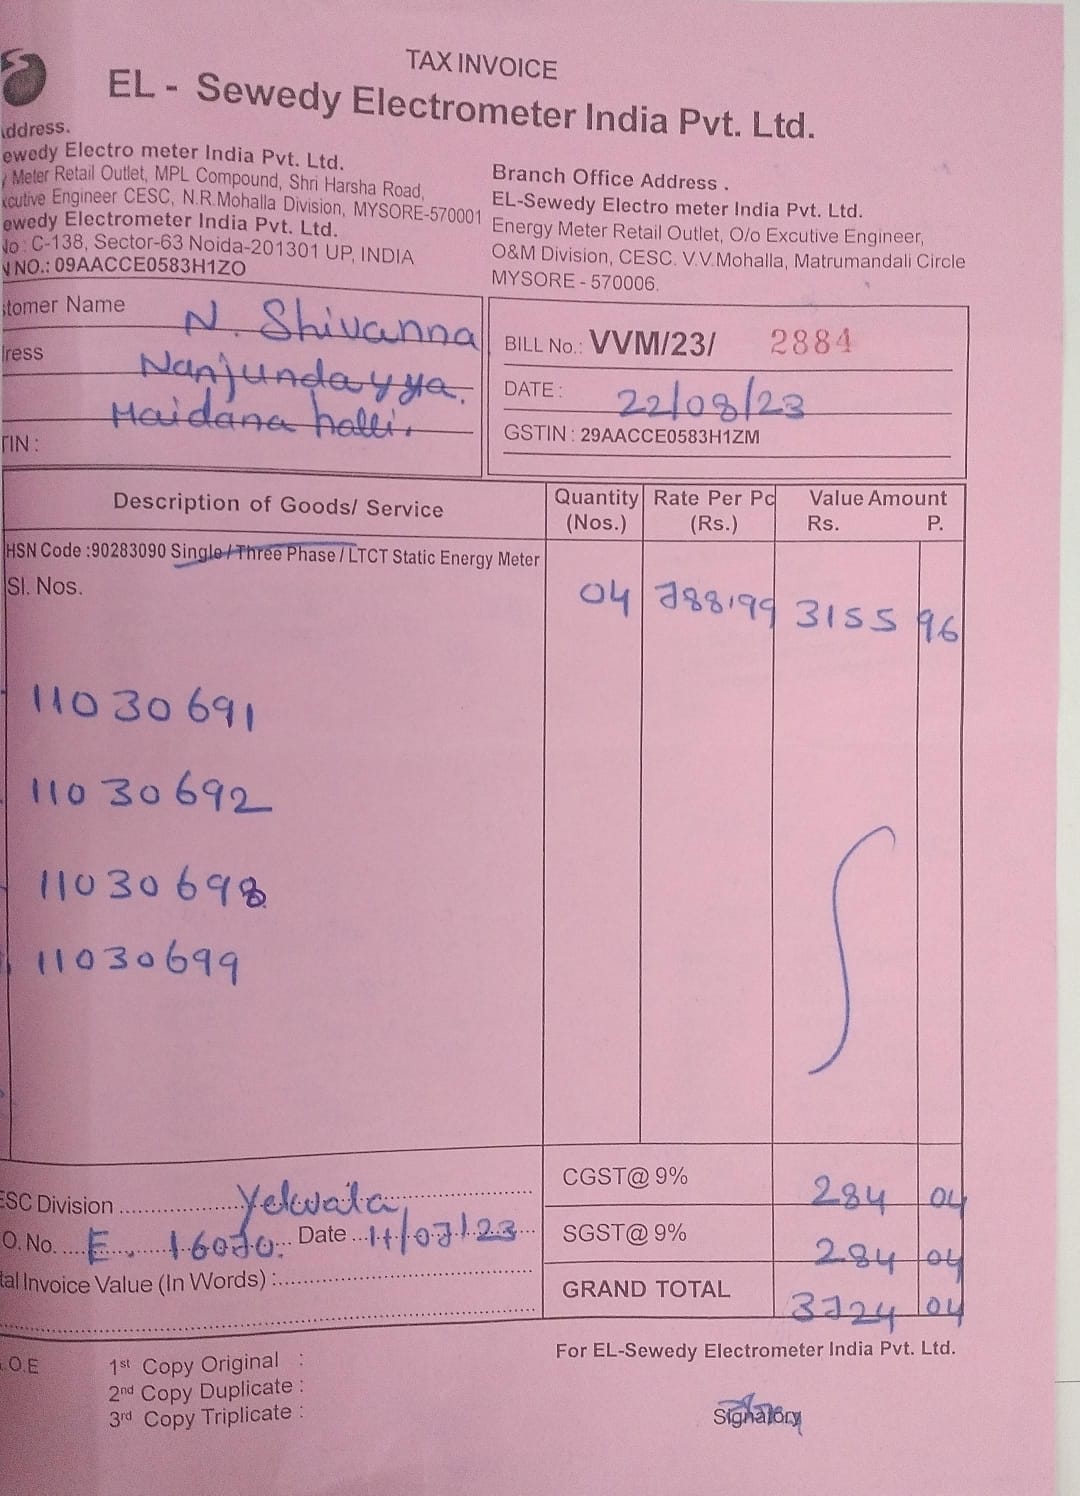 TAX INVOICE
EL - Sewedy Electrometer India Pvt. Ltd.
ddress.
ewedy Electro meter India Pvt. Ltd.
Meter Retail Outlet, MPL Compound, Shri Harsha Road,
cutive Engineer CESC, N.R.Mohalla Division, MYSORE-570001
ewedy Electrometer India Pvt. Ltd.
No : C-138, Sector-63 Noida-201301 UP, INDIA
N NO.: 09AACCE0583H1ZO
Branch Office Address .
EL-Sewedy Electro meter India Pvt. Ltd.
Energy Meter Retail Outlet, O/o Excutive Engineer,
O&M Division, CESC. V.V.Mohalla, Matrumandali Circle
MYSORE - 570006.
stomer Name N. Shivanna
ress Nanjundayya.
Haidana halli.
TIN :
BILL No.: VVM/23/ 2884
DATE : 22/08/23
GSTIN : 29AACCE0583H1ZM
Description of Goods/ Service Quantity (Nos.) Rate Per Pc (Rs.) Value Amount Rs. P.
HSN Code :90283090 Single / Three Phase / LTCT Static Energy Meter
Sl. Nos. 04 788.99 3155 96
11030691
11030692
11030698
11030699
CGST@ 9% 284 04
SGST@ 9% 284 04
GRAND TOTAL 3724 04
ESC Division Yelwala
O. No. E. 16070. Date 11/07/23
tal Invoice Value (In Words) :
For EL-Sewedy Electrometer India Pvt. Ltd.
.O.E 1st Copy Original :
2nd Copy Duplicate :
3rd Copy Triplicate :
Signatory